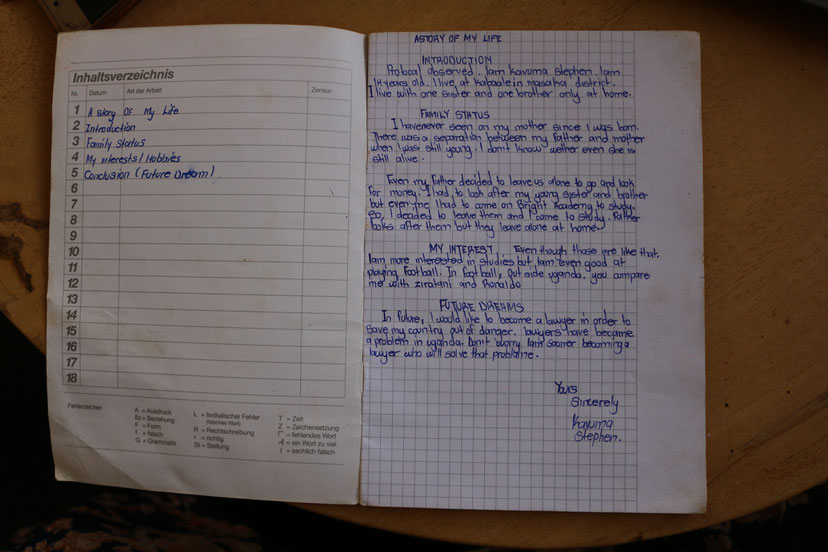 Inhaltsverzeichnis
Nr. Datum Art der Arbeit Zensur
1 A Story Of My Life
2 Introduction
3 Family Status
4 My interests / Hobbies
5 Conclusion (Future Dream)
6
7
8
9
10
11
12
13
14
15
16
17
18
Fehlerzeichen
A = Ausdruck
Bz = Beziehung
F = Form
f = falsch
G = Grammatik
L = lexikalischer Fehler
(falsches Wort)
R = Rechtschreibung
r = richtig
St = Stellung
T = Zeit
Z = Zeichensetzung
Γ = fehlendes Wort
= ein Wort zu viel
! = sachlich falsch
ASTORY OF MY LIFE
INTRODUCTION
Protocal observed. Iam Kavuma Stephen. Iam
14 years old. I live at Kapaale in Masaka district.
I live with one sister and one brother only at home.
FAMILY STATUS
I havenever seen on my mother since I was born.
There was a separation between my Father and mother
when I was still young. I don't know wether even she is
still alive.
Even my Father decided to leave us alone to go and look
for money. I had to look after my young sister and brother
but even me I had to come on Bright Academy to study.
so, I decided to leave them and I come to study. Father
looks after them but they leave alone at home.
MY INTEREST. Even though those are like that,
Iam more interested in studies but Iam even good at
playing Football. In Football, Out side uganda, you compare
me with ziratani and Ronaldo
FUTURE DREAMS
In future, I would like to become a lawyer in order to
save my country out of danger. lawyers have became
a problem in uganda. Don't worry Iam sooner becoming a
lawyer who will solve that problame.
Yours
Sincerely
Kavuma
Stephen.